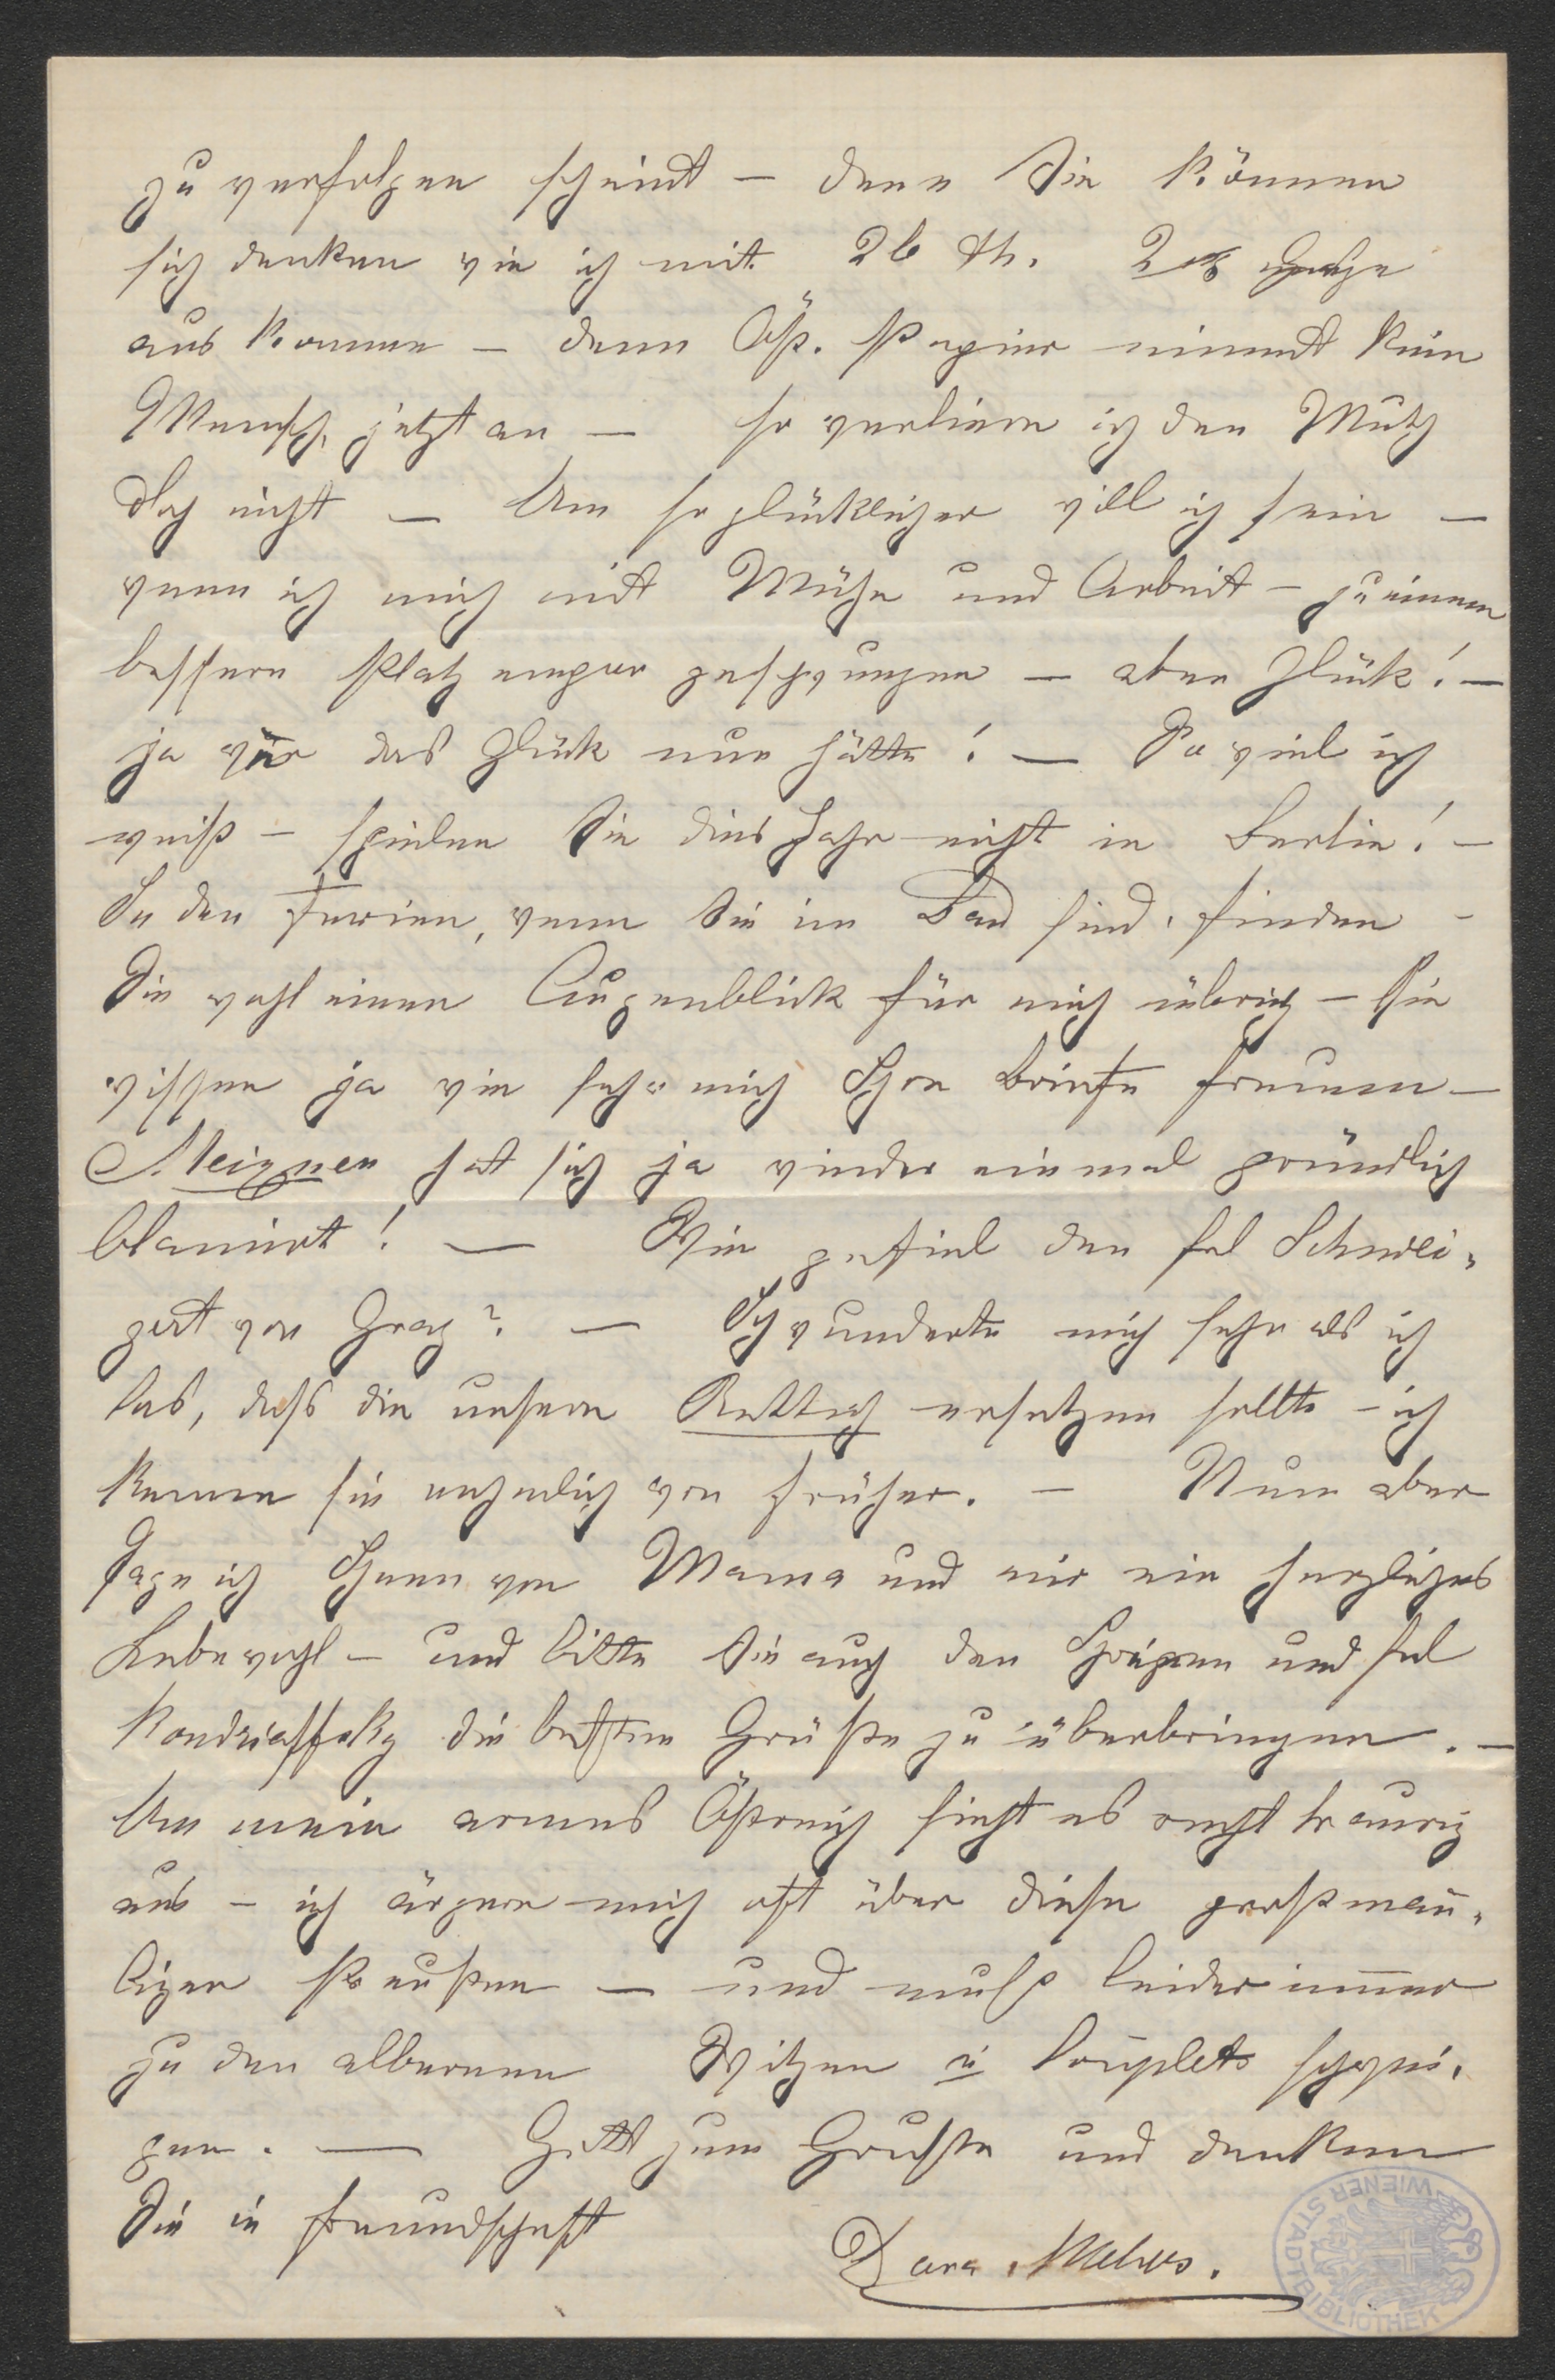 zu verfolgen scheint – denn Sie können
sich denken wie ich mit 26 th. Gage
aus komme – denn Öst. Papier nimmt kein
Mensch jetzt an – so verliere ich den Muth
doch nicht – Um so glücklicher will ich sein –
wenn ich mich mit Mühe und Arbeit – zu einem
bessern Platz empor geschwungen – aber Glück! –
ja wer das Glück nur hätte! – So viel ich
weiß – spielen Sie dies Jahr nicht in Berlin! –
In den Ferien, wenn Sie im Bad sind, finden –
Sie wohl einen Augenblick für mich übrig – Sie
wissen ja wie sehr mich Ihre Briefe freuen –
Meixner hat sich ja wieder einmal gründlich
blamirt! – Wie gefiel den frl Schwei-
gert von Graz? – Ich wunderte mich sehr als ich
las, dass die unsere Rettich ersetzen sollte – ich
kenne sie nehmlich von früher. – Nun aber
sage ich Ihnen von Mama und mir ein herzliches
Lebewohl – und bitte Sie auch den Ihrigen und frl
die besten Grüße zu überbringen. –
Um mein armes Östreich sieht es recht traurig
aus – ich ärgere mich oft über diese großmäu-
ligen Preußen – und muß leider immer
zu den albernen Witzen u Couplets schwei-
gen. – Gott zum Gruße und denken
Sie in Freundschaft
Dora
WIENER STADTBIBLIOTHEK